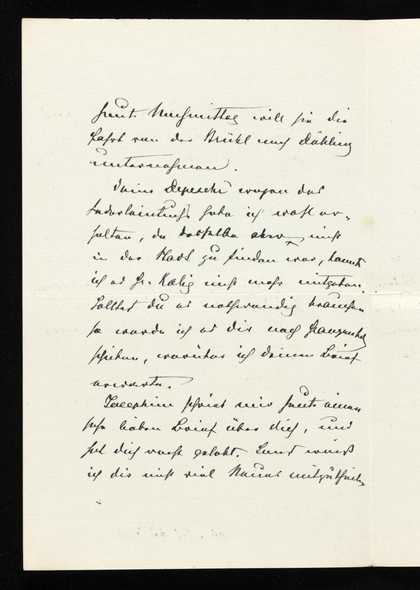 heut Nachmittag will sie die
Fahrt von der Brühl nach Döbling
unternehmen.
Deine Depesche wegen des
habe ich wohl er-
halten, da dasselbe aber nicht
in der Stadt zu finden war, konnte
ich es Fr. nicht mehr mitgeben.
Solltest du es nothwendig brauchen
so werde ich es dir nach Franzensbad
schicken, worüber ich deinen Brief
erwarte.
Josephine schrieb mir heute einen
sehr lieben Brief über dich, und
hat dich recht gelobt. Sonst weiß
ich dir nicht viel Neues mitzutheilen